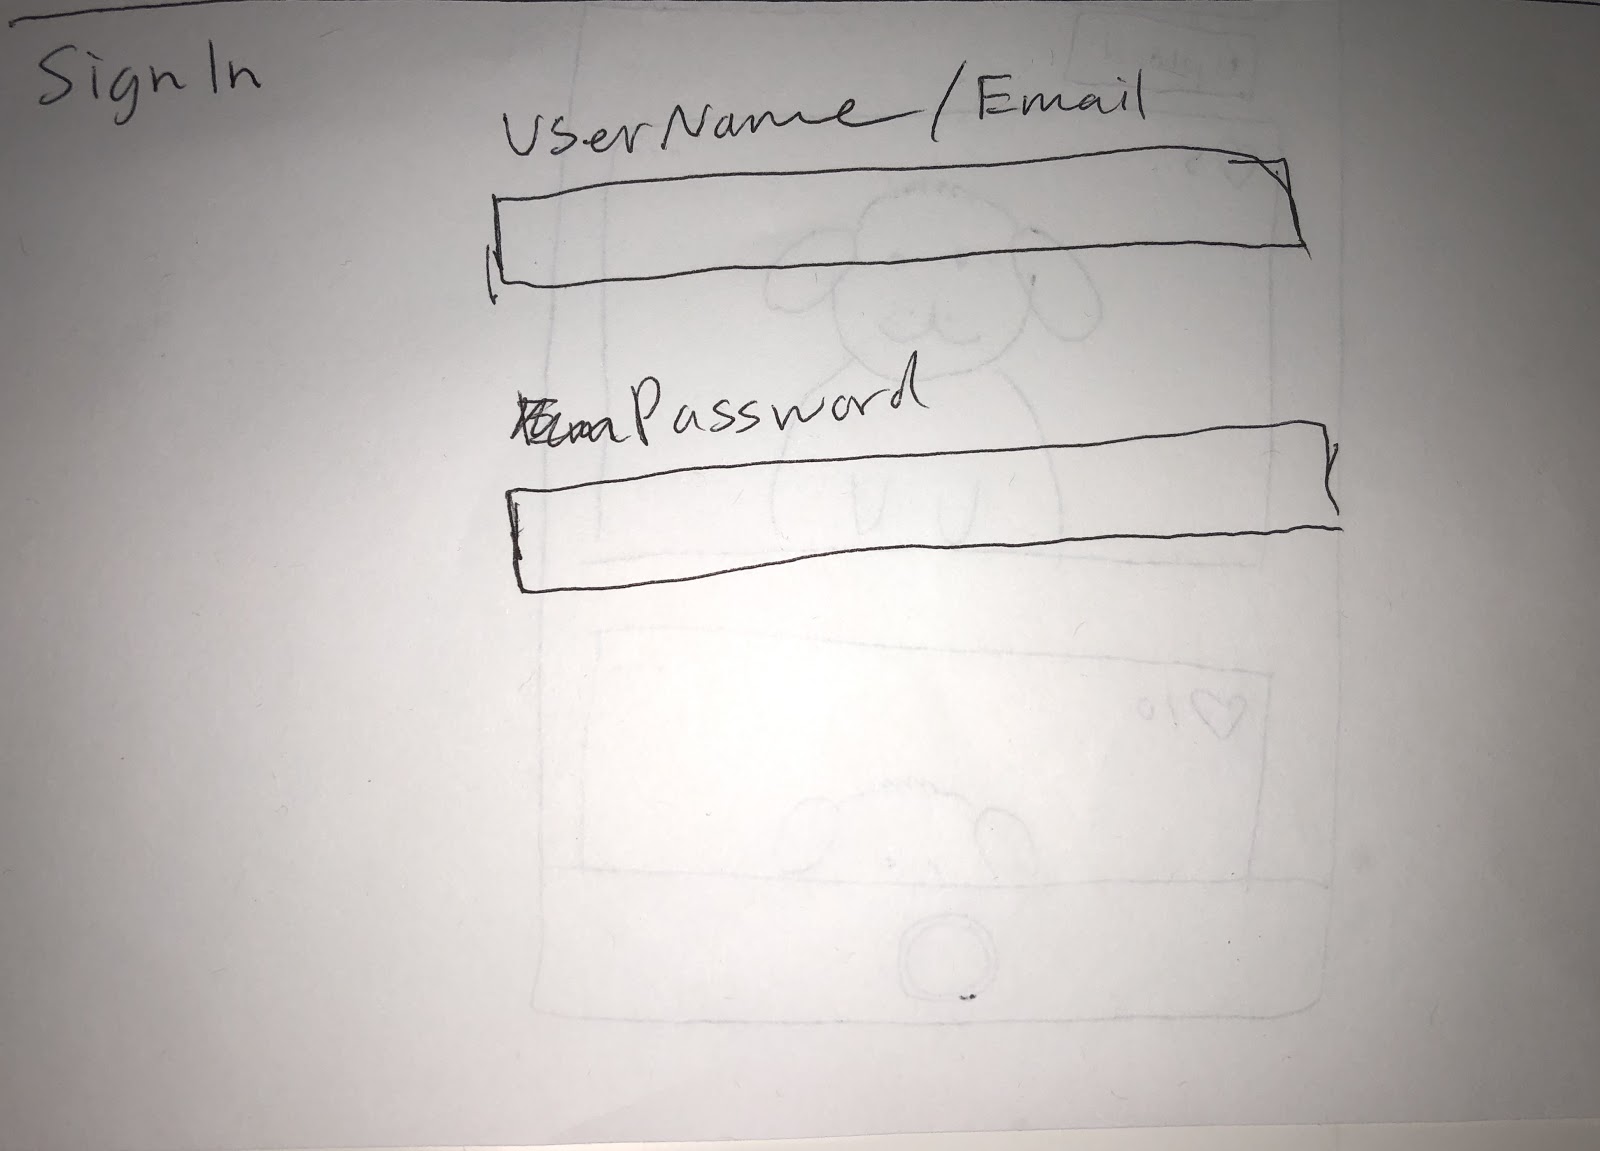 Sign In
UserName/Email
Password
10